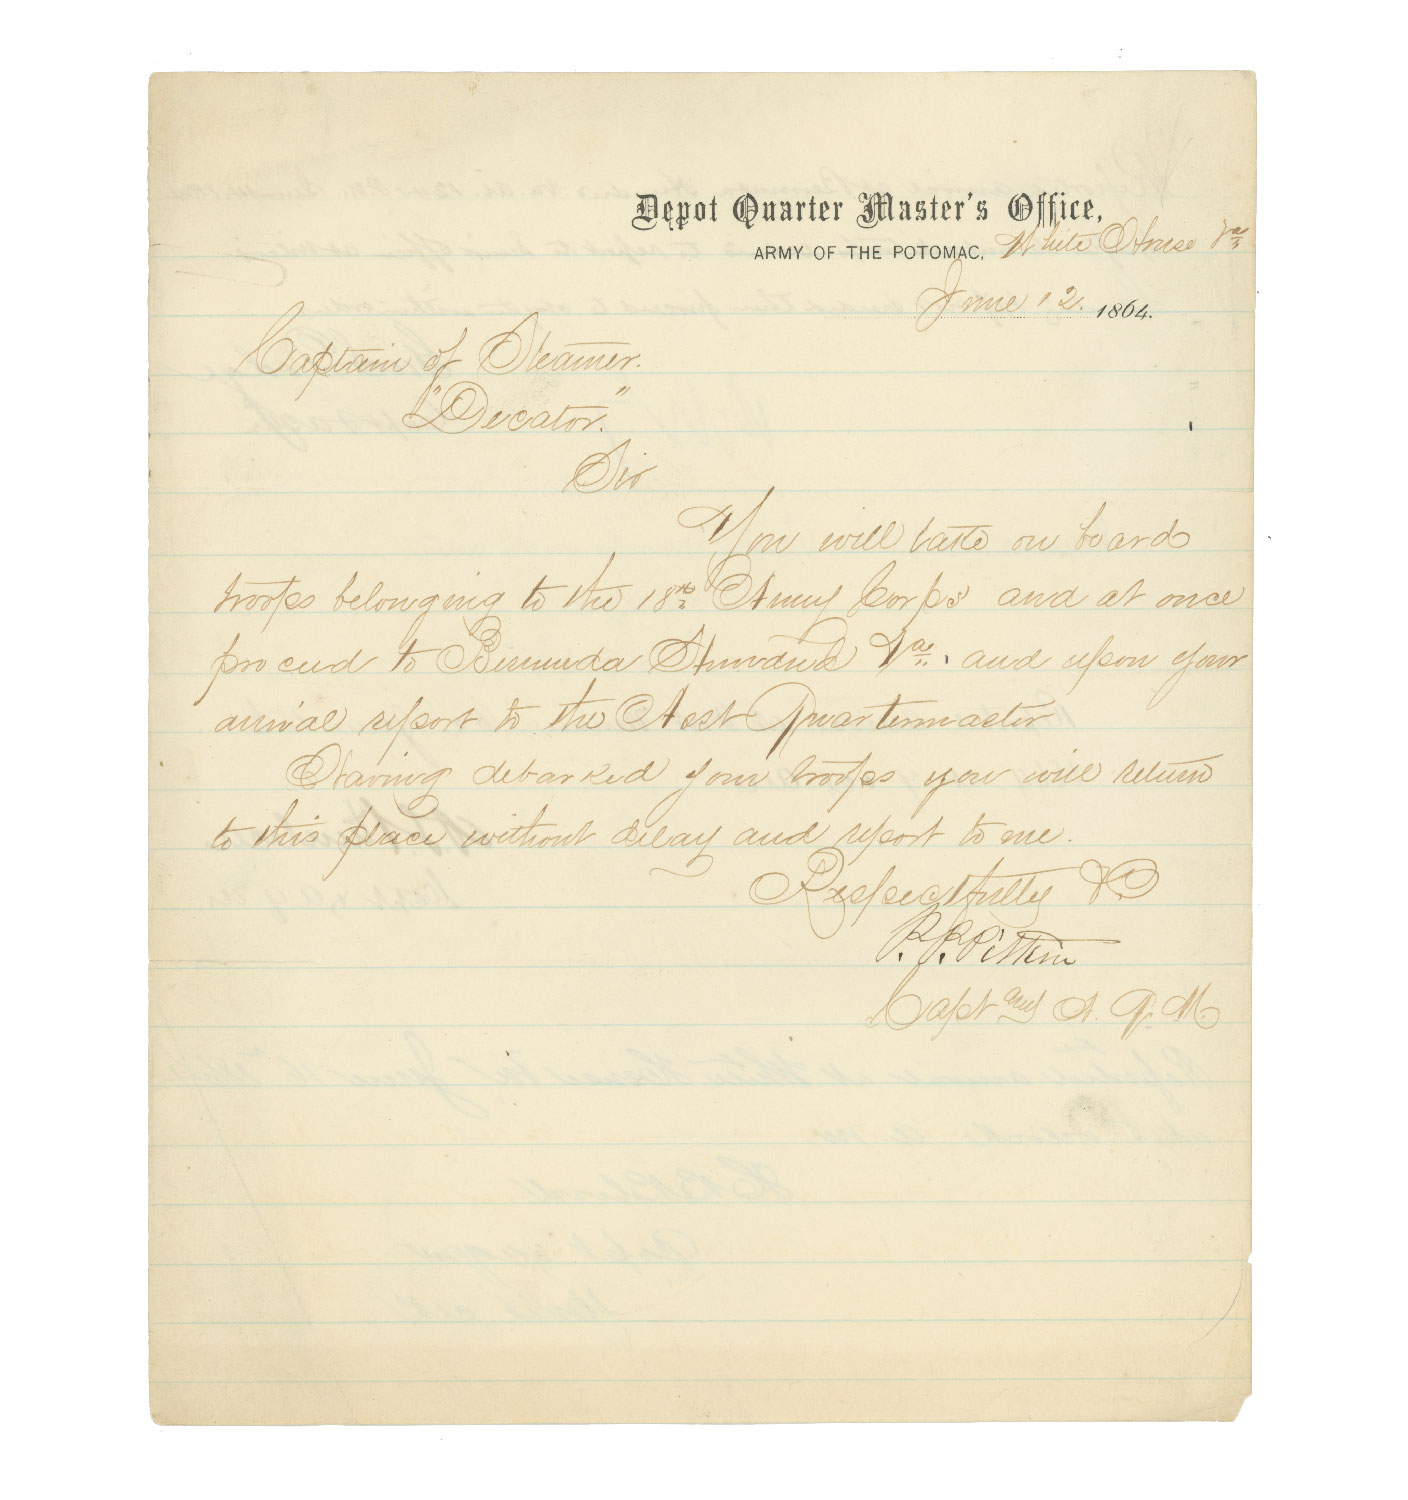 Depot Quarter Master's Office,
ARMY OF THE POTOMAC, White House Va
June 12. 1864.
Captain of Steamer.
"Decator."
Sir
You will take on board
troops belonging to the 18th Army Corps and at once
proceed to Bermuda Hundred Va. and upon your
arrival report to the Asst Quartermaster
Having debarked your troops you will return
to this place without delay and report to me.
Respectfully &c
P. P. Pitkin
Capt and A. Q. M.